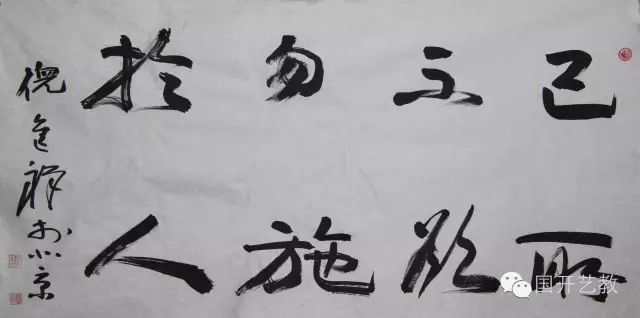 己所
不欲
勿施
於人
倪進祥於北京
国开艺教